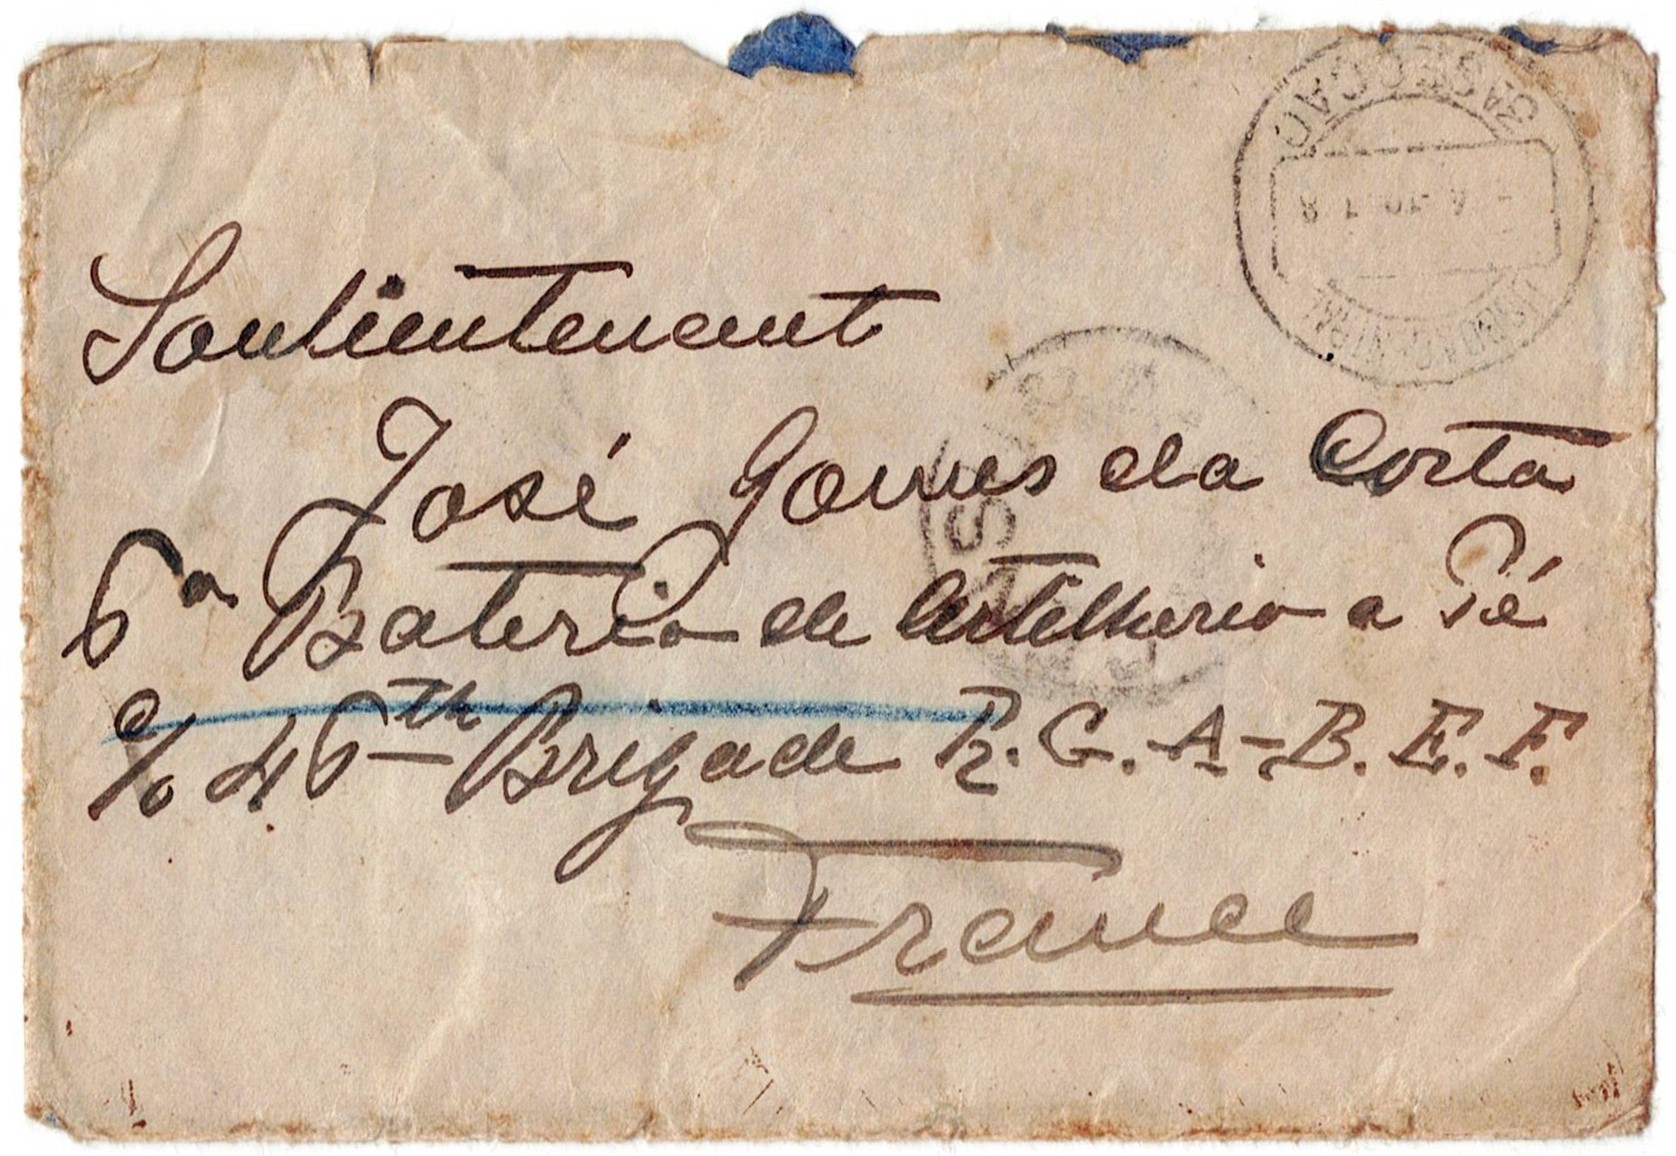 Soulieutenant
José Gomes da Costa
6ª Bateria de Artelheria a Pé
c/o 46th Brigade R.G.A-B.E.F.
France